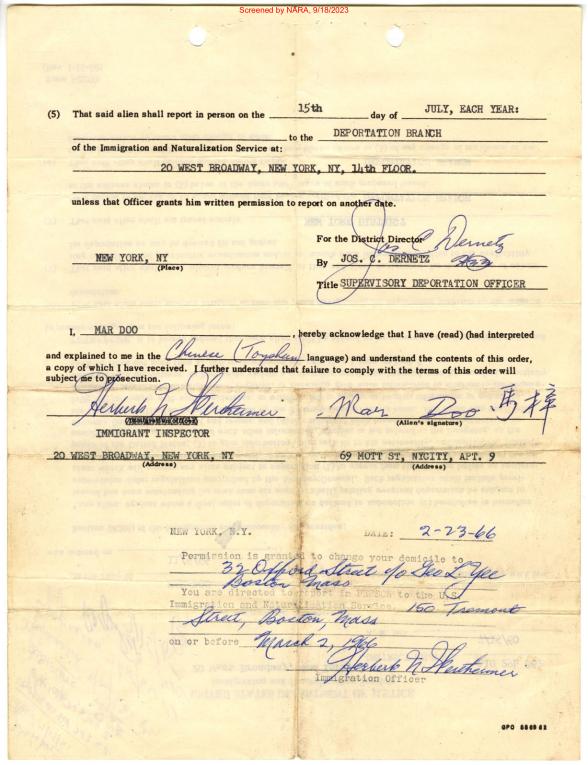 Screened by NARA, 9/18/2023
(5) That said alien shall report in person on the 15th day of JULY, EACH YEAR:
to the DEPORTATION BRANCH
of the Immigration and Naturalization Service at:
20 WEST BROADWAY, NEW YORK, NY, 14th FLOOR.
unless that Officer grants him written permission to report on another date.
Jos C. Dernetz
For the District Director
NEW YORK, NY By JOS. C. DERNETZ
(Place)
Title SUPERVISORY DEPORTATION OFFICER
I, MAR DOO, hereby acknowledge that I have (read) (had interpreted
and explained to me in the Chinese (Toyshan) language) and understand the contents of this order,
a copy of which I have received. I further understand that failure to comply with the terms of this order will
subject me to prosecution.
Mar Doo 馬梓
(Alien's signature)
IMMIGRANT INSPECTOR
20 WEST BROADWAY, NEW YORK, NY 69 MOTT ST, NYCITY, APT. 9
(Address) (Address)
NEW YORK, N.Y. DATE: 2-23-66
Permission is granted to change your domicile to
32 Oxford Street c/o Geo L. Yee
Boston Mass
You are directed to report in PERSON to the U.S.
Immigration and Naturalization Service, 150 Tremont
Street, Boston, Mass
on or before March 2, 1966
Immigration Officer
GPO